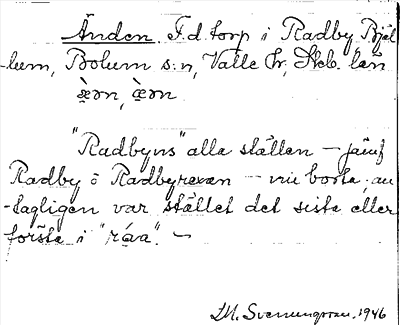 Änden. F.d. torp i Radby, Bjäl-
lum, Bolum s:n, Valle hr, Skb. län
æ̀ən, æ̀ən
"Radbyns" alla ställen – jämf
Radby o Radbyrevan – nu borta, an-
tagligen var stället det sista eller
första i "räva". –
M. Svenungsson. 1946